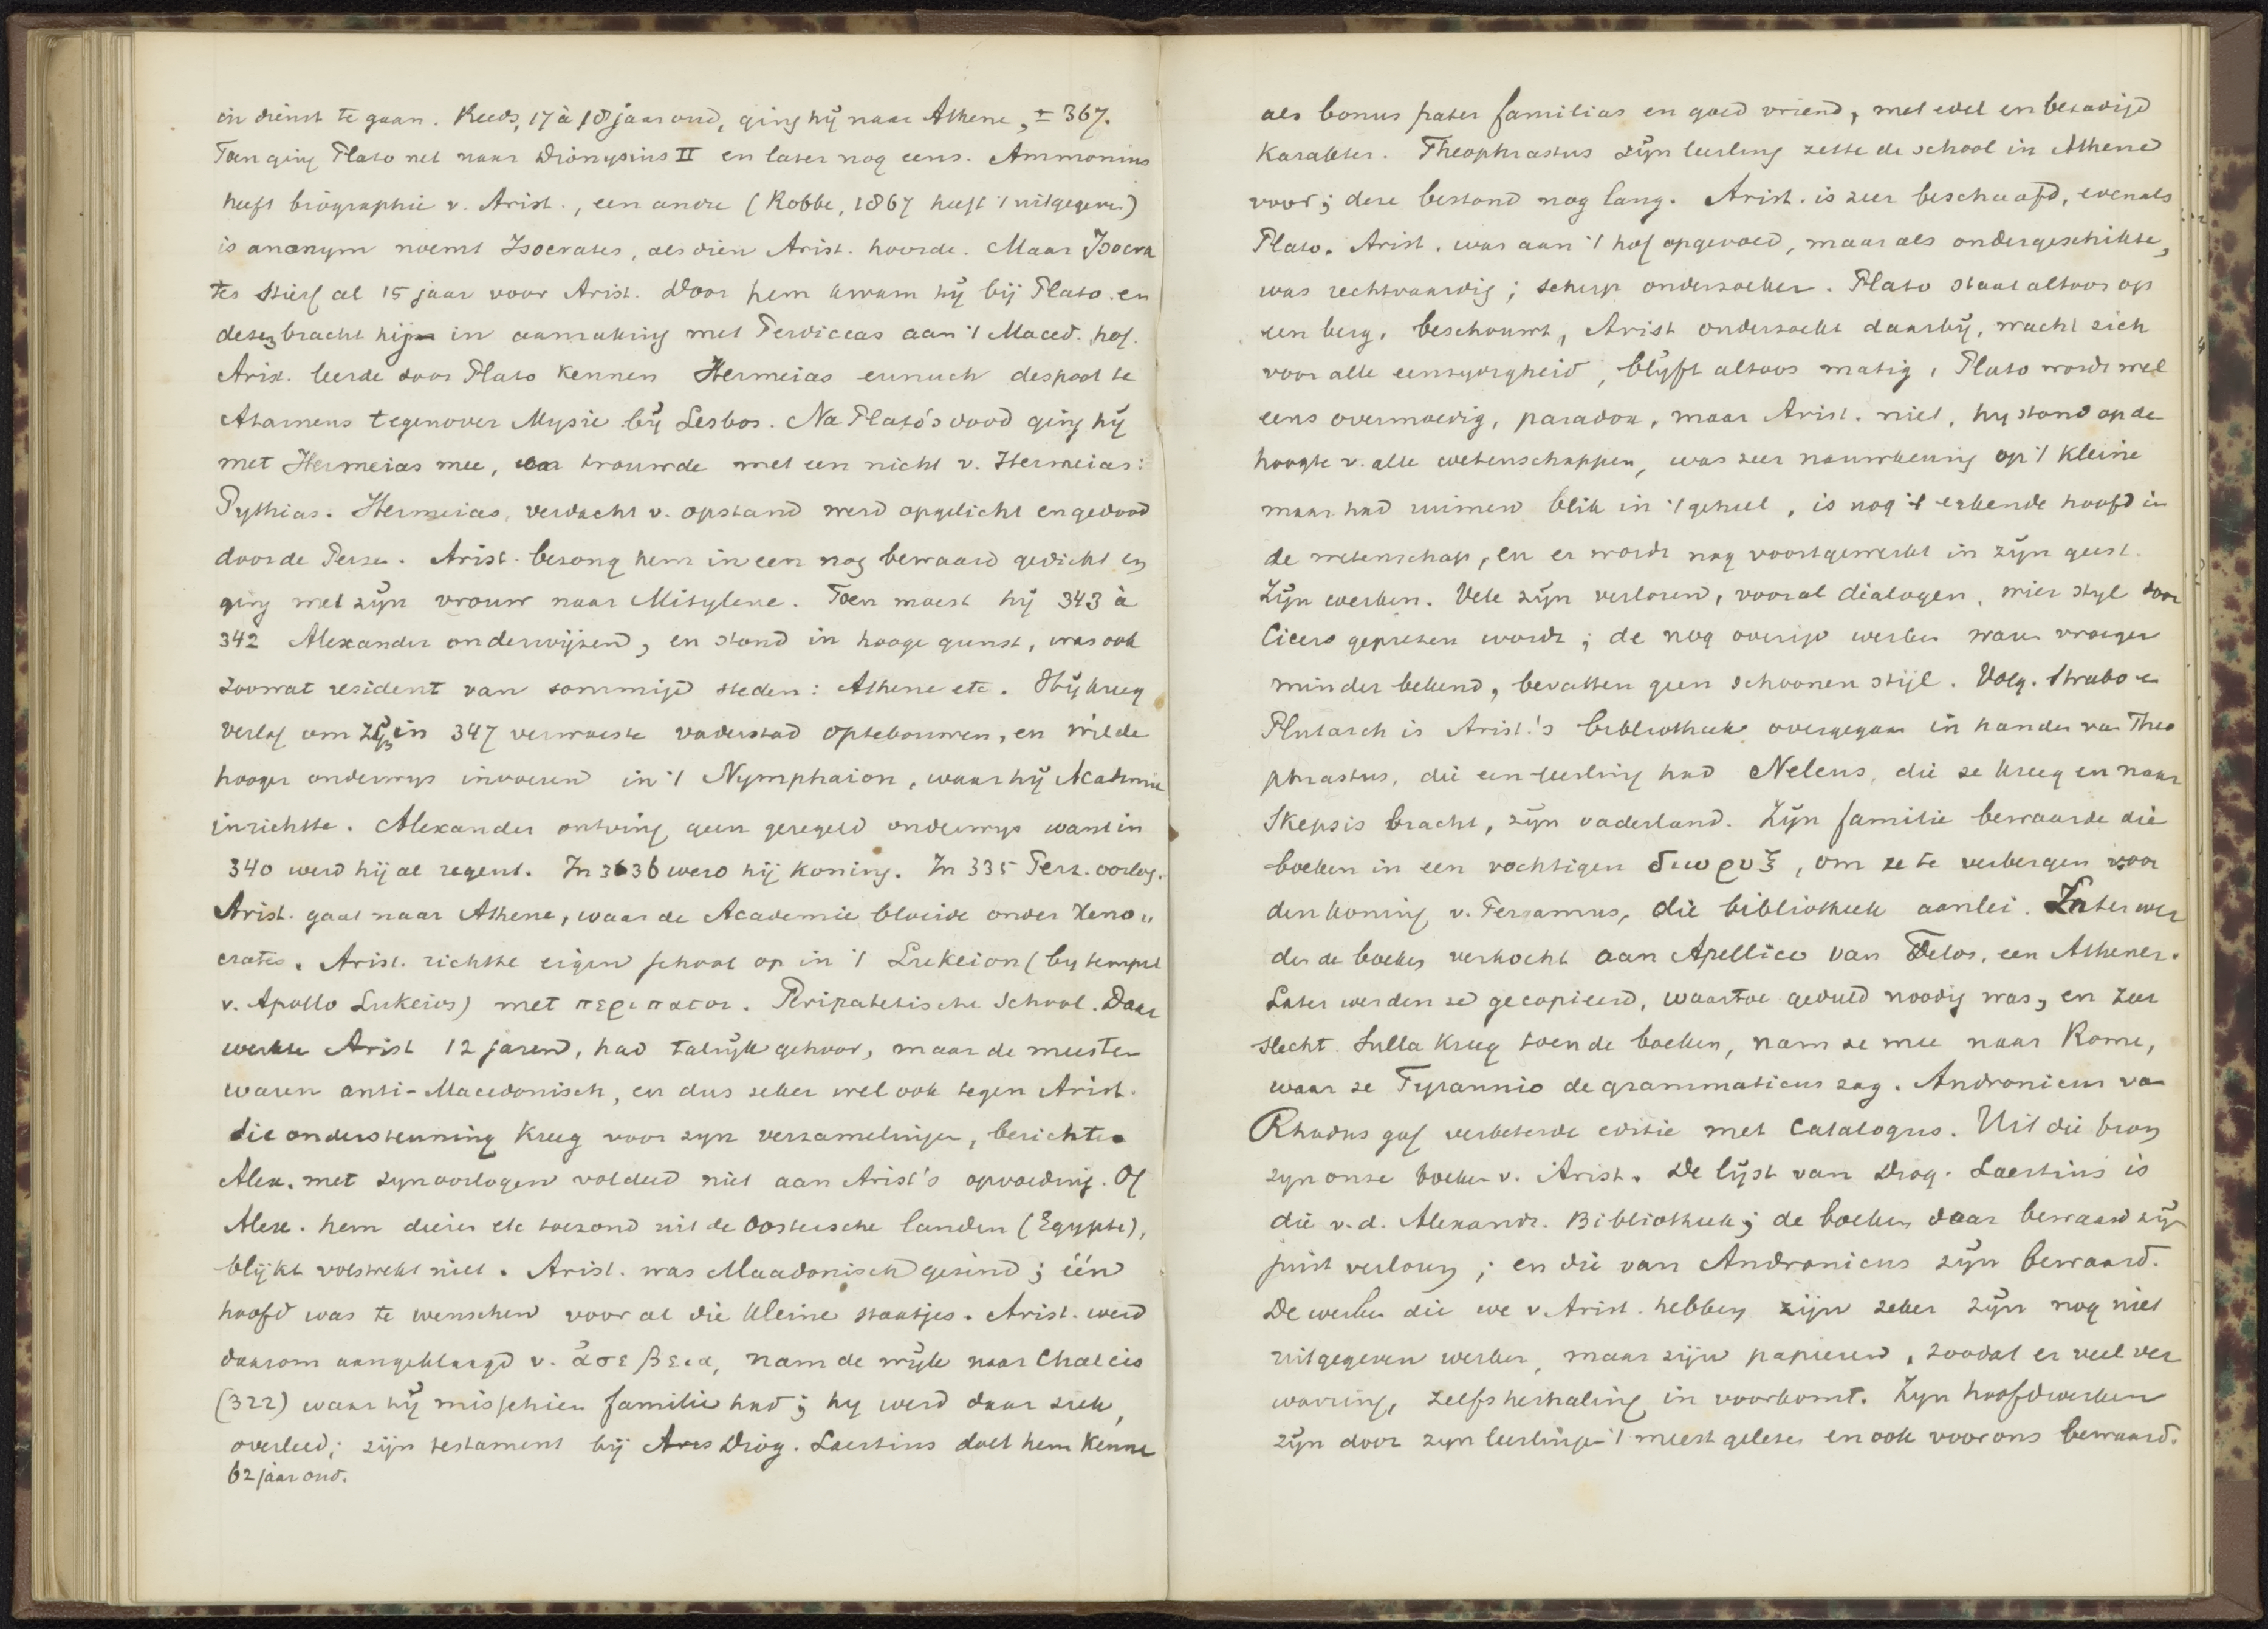 in dienst te gaan. Reeds, 17 à 18 jaar oud, ging hij naar Athene, ± 367.
Toen ging Plato net naar Dionysius II en later nog eens. Ammonius
heeft biographie v. Arist., een andre (Robbe, 1867 heeft 't uitgegeven)
is anonym noemt Isocrates, als dien Arist. hoorde. Maar Isocra
tes stierf al 15 jaar voor Arist. Door hem kwam hij bij Plato en
deze bracht hij in aanraking met Perdiccas aan 't Maced. hof.
Arist. leerde door Plato kennen Hermeias eunuch despoot te
Atarneus tegenover Mysie bij Lesbos. Na Plato's dood ging hij
met Hermeias mee, trouwde met een nicht v. Hermeias:
Pythias. Hermeias, verdacht v. opstand werd opgelicht en gedood
door de Perzen. Arist. bezong hem in een nog bewaard gedicht en
ging met zijn vrouw naar Mitylene. Toen moest hij 343 à
342 Alexander onderwijzen, en stond in hooge gunst, was ook
zoowat resident van sommige steden: Athene etc. Hij kreeg
verlof om zijn in 347 verwoeste vaderstad optebouwen, en wilde
hooger onderwys invoeren in 't Nymphaion, waar hij Academie
inrichtte. Alexander ontving geen geregeld onderwys want in
340 werd hij al regent. In 336 werd hij koning. In 335 Perz. oorlog.
Arist. gaat naar Athene, waar de Academie bloeide onder Xeno„
crates. Arist. richtte eigen school op in 't Lukeion (by tempel
v. Apollo Lukeios) met περιπατοι. Peripatetische School. Daar
werkte Arist 12 jaren, had talrijk gehoor, maar de meesten
waren anti-Macedonisch, en dus zeker wel ook tegen Arist.
die ondersteuning kreeg voor zyn verzamelingen, berichten
Alex. met zyn oorlogen voldeed niet aan Arist's opvoeding. Of
Alex. hem dieren etc toezond uit de Oostersche landen (Egypte),
blijkt volstrekt niet. Arist. was Macedonisch gezind; één
hoofd was te wenschen voor al die kleine staatjes. Arist. werd
daarom aangeklaagd v. ἀσεβεια, nam de wijk naar Chalcis
(322) waar hij misschien familie had; hy werd daar ziek,
overleed; zijn testament bij Diog. Laertius doet hem kennen
62 jaar oud.
als bonus pater familias en goed vriend, met edel en bezadigd
karakter. Theophrastus zijn leerling zette de school in Athene
voort; deze bestond nog lang. Arist. is zeer beschaafd, evenals
Plato. Arist. was aan 't hof opgevoed, maar als ondergeschikte,
was rechtvaardig; scherp onderzoeker. Plato staat altoos op
een berg, beschouwt, Arist onderzoekt daarbij, wacht zich
voor alle eenzydigheid, blijft altoos matig, Plato wordt wel
eens overmoedig, paradox, maar Arist. niet, hy stond op de
hoogte v. alle wetenschappen, was zeer nauwkeurig op 't kleine
maar had ruimen blik in 't geheel, is nog 't erkende hoofd in
de wetenschap, en er wordt nog voortgewerkt in zijn geest.
Zijn werken. Vele zijn verloren, vooral dialogen, wier styl door
Cicero geprezen wordt; de nog overige werken waren vroeger
minder bekend, bevatten geen schoonen stijl. Volg. Strabo en
Plutarch is Arist.'s bibliotheek overgegaan in handen van Theo
phrastus, die een leerling had Neleus, die ze kreeg en naar
Skepsis bracht, zijn vaderland. Zijn familie bewaarde die
boeken in een vochtigen διωρυξ, om ze te verbergen voor
den koning v. Pergamus, die bibliotheek aanlei. Later wer
den de boeken verkocht aan Apellico van Delos, een Athener.
Later werden ze gecopieerd, waartoe geduld noodig was, en zeer
slecht. Sulla kreeg toen de boeken, nam ze mee naar Rome,
waar ze Tyrannio de grammaticus zag. Andronicus van
Rhodus gaf verbeterde editie met Catalogus. Uit die bron
zyn onze boeken v. Arist. De lijst van Diog. Laertius is
die v. d. Alexandr. Bibliotheek; de boeken daar bewaard zijn
juist verloren; en die van Andronicus zijn bewaard.
De werken die we v. Arist. hebben zijn zeker zijn nog niet
uitgegeven werken, maar zijn papieren, zoodat er veel ver
warring, zelfs herhaling in voorkomt. Zyn hoofdwerken
zijn door zyn leerlingen 't meest gelezen en ook voor ons bewaard.